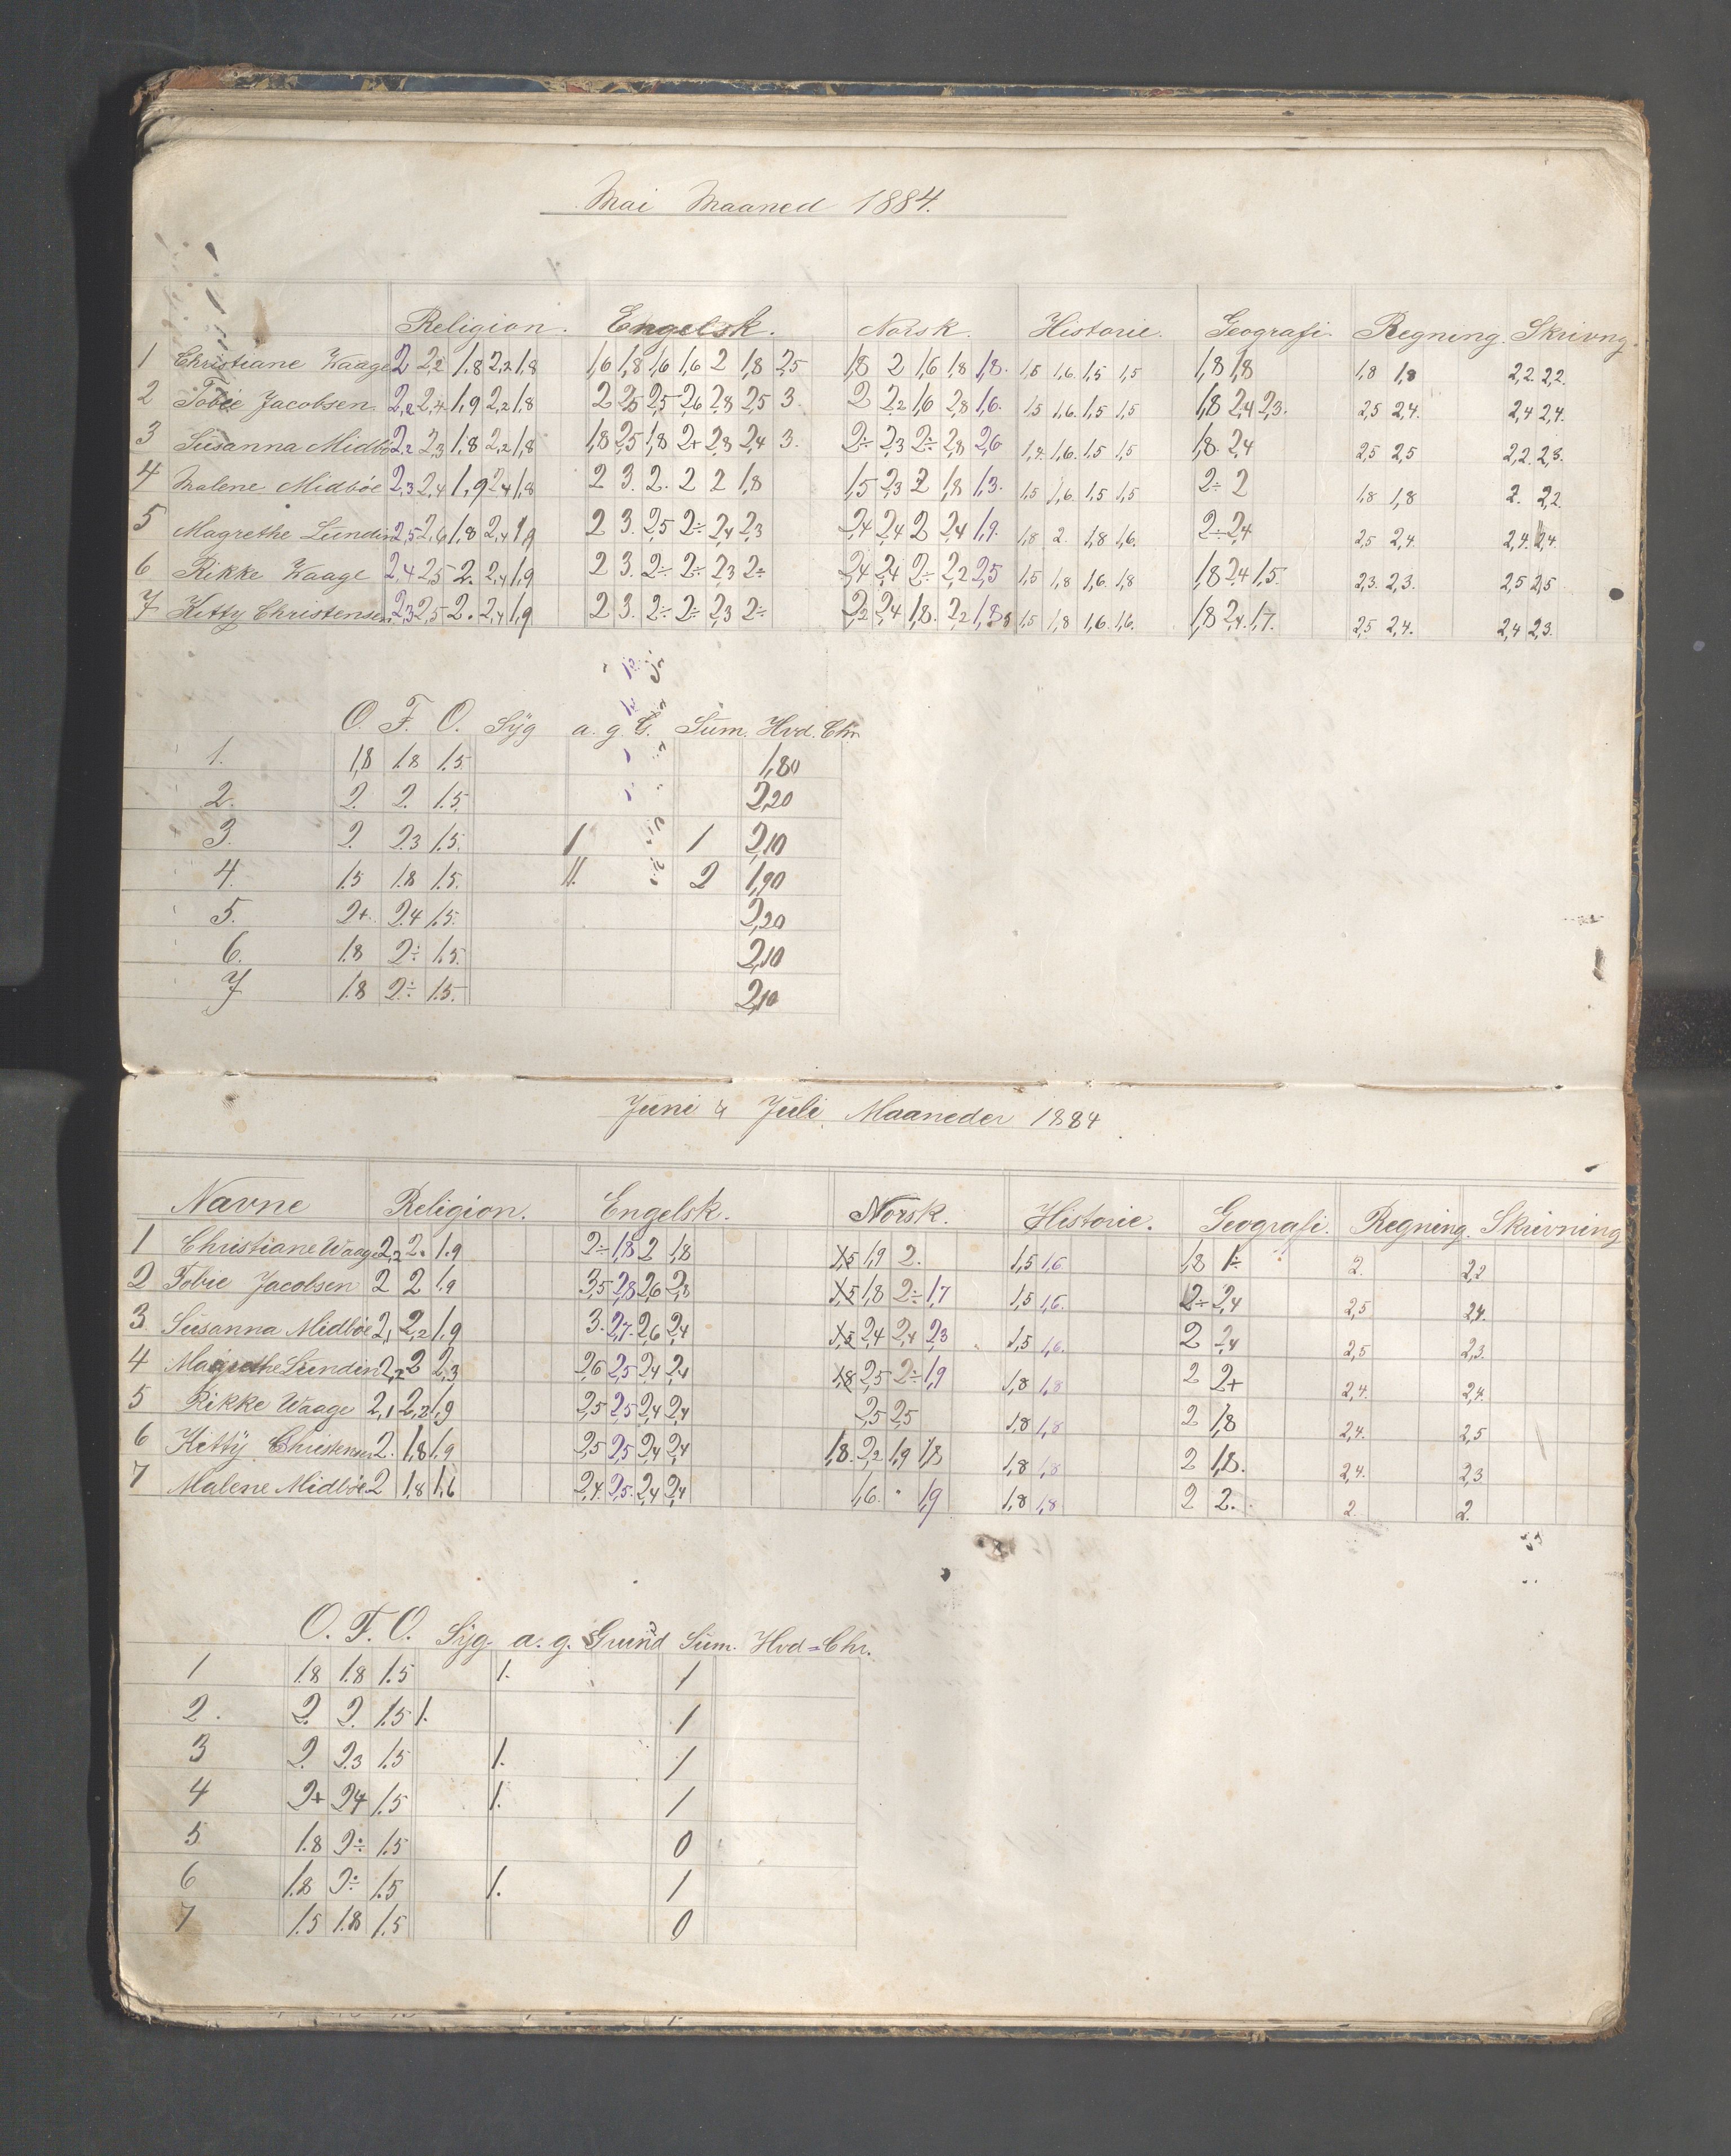 Mai Maaned 1884.
Religion. Engelsk. Norsk. Historie. Geografi. Regning. Skrivng.
1 Christiane Waage 2 2,2 1,8 2,2 1,8 1,6 1,8 1,6 1,6 2 1,8 2,5 1,8 2 1,6 1,8 1,8. 1,5 1,6. 1,5 1,5 1,8 1,8 1,8 1,8 2,2. 2,2.
2 Tobie Jacobsen 2,2 2,4 1,9 2,2 1,8 2 2,5 2,5 2,6 2,8 2,5 3. 2 2,2 1,6 2,8 1,6. 1,5 1,6. 1,5 1,5 1,8 2,4 2,3. 2,5 2,4. 2,4 2,4.
3 Susanna Midbö 2,2 2,3 1,8 2,2 1,8 1,8 2,5 1,8 2+ 2,8 2,4 3. 2÷ 2,3 2÷ 2,8 2,6 1,4. 1,6. 1,5 1,5 1,8. 2,4 2,5 2,5 2,2. 2,3.
4 Malene Midböe 2,3 2,4 1,9 2,4 1,8 2 3. 2. 2 2 1,8 1,5 2,3 2 1,8 1,3. 1,5 1,6. 1,5 1,5 2÷ 2 1,8 1,8 2. 2,2
5 Magrethe Lundin 2,5 2,6 1,8 2,4 1,9 2 3. 2,5 2÷ 2,4 2,3 2,4 2,4 2 2,4 1,9. 1,8 2. 1,8 1,6. 2÷ 2,4 2,5 2,4. 2,4. 2,4.
6 Rikke Waage 2,4 2,5 2. 2,4 1,9 2 3. 2÷ 2÷ 2,3 2÷ 2,4 2,4 2÷ 2,2 2,5 1,5 1,8 1,6. 1,8 1,8 2,4 1,5. 2,3. 2,3. 2,5 2,5
7 Kitty Christensen 2,3 2,5 2. 2,4 1,9 2 3. 2÷ 2÷ 2,3 2÷ 2,2 2,4 1,8. 2,2 1,8 1,5 1,8 1,6. 1,6. 1,8 2,4. 1,7. 2,5 2,4. 2,4 2,3.
O. F. O. Syg a. g. G. Sum. Hvd. Chr.
1. 1,8 1.8 1.5 1,80
2. 2. 2. 1.5. 2,20
3. 2. 2.3 1.5. 1 1 2,10
4. 1.5 1.8 1.5. 11. 2 1,90
5. 2+ 2.4 1.5. 2,20
6. 1.8 2÷ 1.5. 2,10
7 1.8 2÷ 1.5. 2,10
Juni & Juli, Maaneder 1884.
Navne Religion. Engelsk. Norsk. Historie. Geografi. Regning. Skrivning
1 Christiane Waage 2,2 2. 1.9 2÷ 1,8 2 1,8 1,5 1,9 2. 1,5 1,6. 1,8 1÷ 2. 2,2
2 Tobie Jacobsen 2 2 1.9 3,5 2,8 2,6 2,8 1,5 1,8 2÷ 1,7 1,5 1,6. 2÷ 2,4 2,5 2,4.
3. Susanna Midböe 2,1 2,2 1,9 3. 2,7. 2,6 2,4 1,5 2,4 2,4 2,3 1,5 1,6. 2 2,4 2,5 2,3.
4 Magrethe Lundin 2,2 2 2,3 2,6 2,5 2,4 2,4 1,8 2,5 2÷ 1,9 1,8 1,8 2 2+ 2,4. 2,4.
5 Rikke Waage 2,1 2,2 1,9 2,5 2,5 2,4 2,4 2,5 2,5 1,8 1,8 2 1,8 2,4. 2,5
6 Kitty Christensen 2. 1,8 1,9 2,5 2,5 2,4 2,4 1,8. 2,2 1,9 1,8 1,8 1,8 2 1,8. 2,4. 2,3
7 Malene Midböe 2 1,8 1,6 2,4. 2,5. 2,4 2,4 1,6. " 1,9 1,8 1,8 2 2. 2. 2.
O. F. O. Syg. a. g. Grund Sum. Hvd=Chr.
1 1.8 1.8 1.5 1. 1
2. 2. 2. 1.5 1. 1
3 2. 2.3 1.5 1. 1
4 2+ 2.4 1.5 1. 1
5 1.8 2÷ 1.5 0
6 1.8 2÷ 1.5 1. 1
7 1.5 1.8 1.5 0